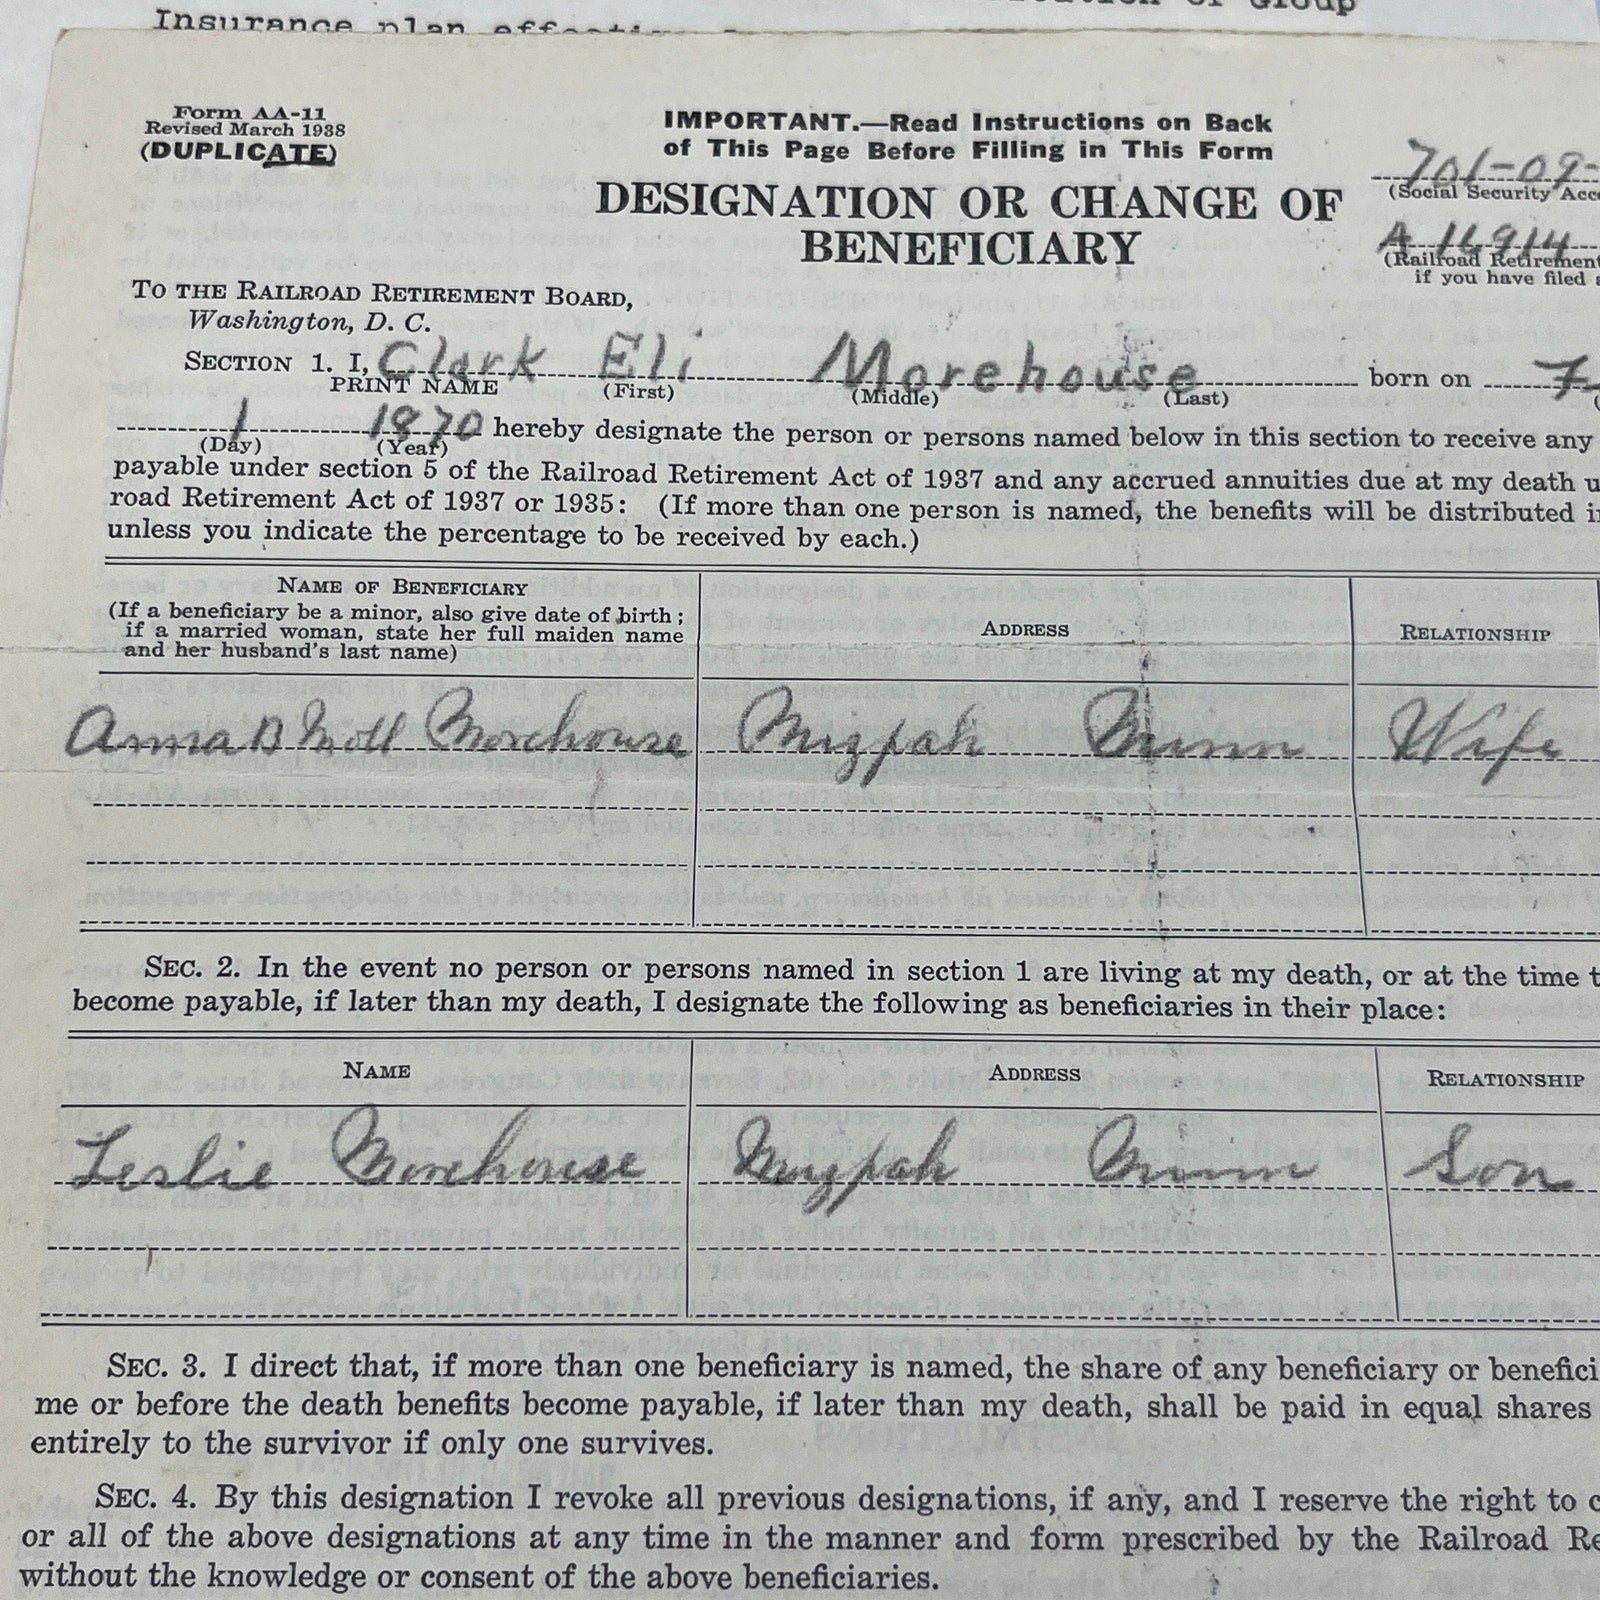 Insurance plan
Group
Form AA-11
Revised March 1938
(DUPLICATE)
IMPORTANT.—Read Instructions on Back
of This Page Before Filling in This Form
DESIGNATION OR CHANGE OF
BENEFICIARY
701-09-
(Social Security Acc
A 16914
(Railroad Retirement
if you have filed
TO THE RAILROAD RETIREMENT BOARD,
Washington, D. C.
SECTION 1. I, Clark Eli Morehouse born on 7
PRINT NAME (First) (Middle) (Last)
1 1870 hereby designate the person or persons named below in this section to receive any
(Day) (Year)
payable under section 5 of the Railroad Retirement Act of 1937 and any accrued annuities due at my death u
road Retirement Act of 1937 or 1935: (If more than one person is named, the benefits will be distributed i
unless you indicate the percentage to be received by each.)
NAME OF BENEFICIARY
(If a beneficiary be a minor, also give date of birth;
if a married woman, state her full maiden name
and her husband's last name)
ADDRESS
RELATIONSHIP
Anna B Moll Morehouse Mizpah Minn Wife
SEC. 2. In the event no person or persons named in section 1 are living at my death, or at the time t
become payable, if later than my death, I designate the following as beneficiaries in their place:
NAME ADDRESS RELATIONSHIP
Leslie Morehouse Mizpah Minn Son
SEC. 3. I direct that, if more than one beneficiary is named, the share of any beneficiary or benefici
me or before the death benefits become payable, if later than my death, shall be paid in equal shares
entirely to the survivor if only one survives.
SEC. 4. By this designation I revoke all previous designations, if any, and I reserve the right to c
or all of the above designations at any time in the manner and form prescribed by the Railroad Re
without the knowledge or consent of the above beneficiaries.